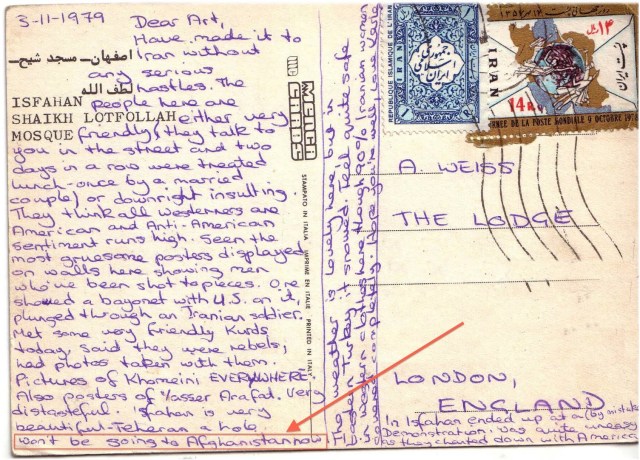 3-11-1979
Dear Art,
Have made it to
Iran without
any serious
hastles. The
people here are
either very
friendly, they talk to
you in the street and two
days in a row were treated
lunch-once by a married
couple) or downright insulting.
They think all westerners are
American and Anti-American
sentiment runs high. Seen the
most gruesome posters displayed
on walls here showing men
who've been shot to pieces. One
showed a bayonet with U.S. on it,
plunged through an Iranian soldier.
Met some very friendly Kurds
today, said they were rebels,
had photos taken with them.
Pictures of Khomeini EVERYWHERE!
Also posters of Yasser Arafat. Very
distasteful. Isfahan is very
beautiful-Teheran a hole.
Won't be going to Afghanistan now.
The weather is lovely here, but in
Eastern Turkey it snowed. Feel quite safe
in western clothes here though 90% Iranian women
covered completely. Hope you're well, Love
اصفهان - مسجد شیخ -
لطف الله
ISFAHAN
SHAIKH LOTFOLLAH
MOSQUE
STAMPATO IN ITALIA IMPRIME EN ITALIE PRINTED IN ITALY
REPUBLIQUE ISLAMIQUE DE L'IRAN
IRAN
جمهوری
اسلامی
ایران
۱۴
IRAN
پست ایران
14 R.
JOURNEE DE LA POSTE MONDIALE 9 OCTOBRE 1978
A. WEISS
THE LODGE
LONDON,
ENGLAND
In Isfahan ended up at a (by mistake)
Demonstration. Was quite uneasy
as they chanted down with America